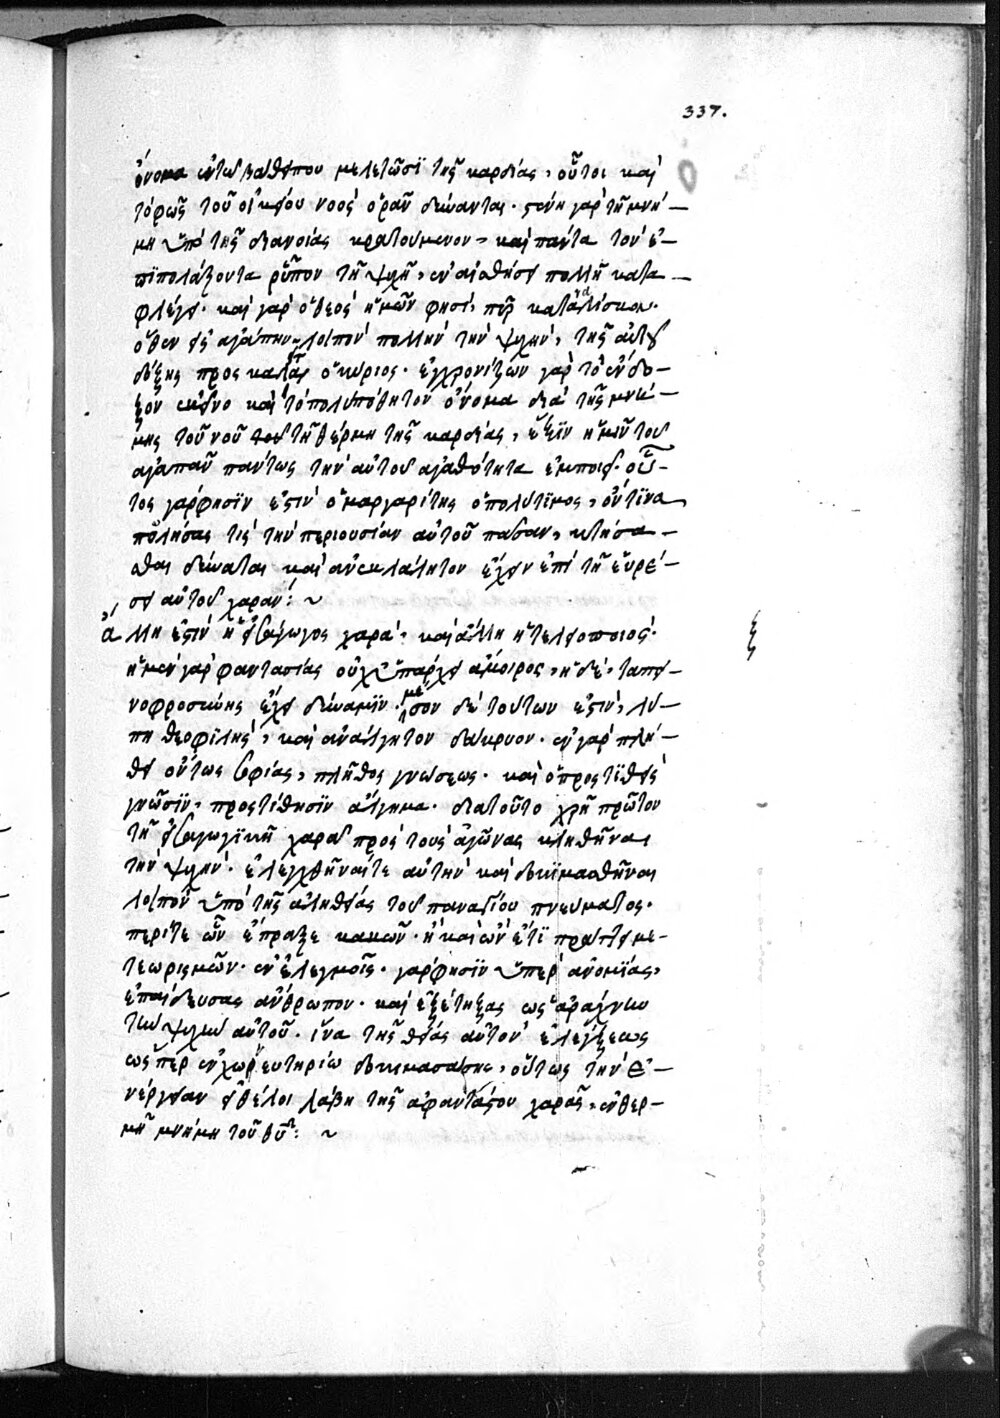 337.
ὄνομα ἐν τῶ βάθει που μελετῶσι τῆς καρδίας, οὗτοι καὶ
τὸ φῶς τοῦ οἰκείου νοὸς ὁρᾶν δύνανται. στενῆ γὰρ τῆ μνή-
μη ὑπὸ τῆς διανοίας κρατούμενον, καὶ πάντα τὸν ἐ-
πιπολάζοντα ῥύπον τῆ ψυχῆ, ἐν αἰσθήσει πολλῆ κατα-
φλέγει. καὶ γὰρ ὁ θεὸς ἡμῶν φησὶ, πῦρ καταναλίσκον.
ὅθεν εἰς ἀγάπην λοιπὸν πολλὴν τὴν ψυχὴν, τῆς αὐτοῦ
δόξης προσκαλεῖται ὁ κύριος. ἐγχρονίζων γὰρ τὸ ἔνδο-
ξον ἐκεῖνο καὶ τὸ πολυπόθητον ὄνομα διὰ τῆς μνή-
μης τοῦ νοῦ τῆ θέρμη τῆς καρδίας, ἕξιν ἡμῖν τοῦ
ἀγαπᾶν πάντως τὴν αὐτοῦ ἀγαθότητα ἐμποιεῖ. οὗ-
τος γάρ φησιν ἐστὶν ὁ μαργαρίτης ὁ πολύτιμος, ὅντινα
πωλήσας τις τὴν περιουσίαν αὐτοῦ πᾶσαν, κτήσα-
σθαι δύναται καὶ ἀνεκλάλητον ἔχειν ἐπὶ τῆ εὑρέ-
σει αὐτοῦ χαράν: ~
ἄλλη ἐστὶν ἡ εἰσαγωγὸς χαρὰ, καὶ ἄλλη ἡ τελειοποιός.
ἡ μὲν γὰρ φαντασίας οὐχ ὑπάρχει ἄμοιρος, ἡ δὲ, ταπει-
νοφροσύνης ἔχει δύναμιν. μέσον δὲ τούτων ἐστὶν, λύ-
πη θεοφιλὴς, καὶ ἀνάλγητον δάκρυον. ἐν γὰρ πλή-
θει ὄντως σοφίας, πλῆθος γνώσεως. καὶ ὁ προστιθεὶς
γνῶσιν, προστίθησιν ἄλγημα. διατοῦτο χρὴ πρῶτον
τῆ εἰσαγωγικῆ χαρᾶ πρὸς τοὺς ἀγῶνας κληθῆναι
τὴν ψυχήν. ἐλεγχθῆναί τε αὐτὴν καὶ δοκιμασθῆναι
λοιπὸν ὑπὸ τῆς ἀληθείας τοῦ παναγίου πνεύματος.
περί τε ὧν ἔπραξε κακῶν. ἢ καὶ ὧν ἔτι πράττει με-
τεωρισμῶν. ἐν ἐλεγμοῖς γάρ φησιν ὑπὲρ ἀνομίας,
ἐπαίδευσας ἄνθρωπον. καὶ ἐξέτηξας ὡς ἀράχνην
τὴν ψυχὴν αὐτοῦ. ἵνα τῆς θείας αὐτὸν ἐλέγξεως
ὥσπερ ἐν χωνευτηρίω δοκιμασάσης, οὕτως τὴν ἐ-
νέργειαν λάβη τῆς ἀφαντάστου χαρᾶς, ἐν θερ-
μῆ μνήμη τοῦ θυ: ~